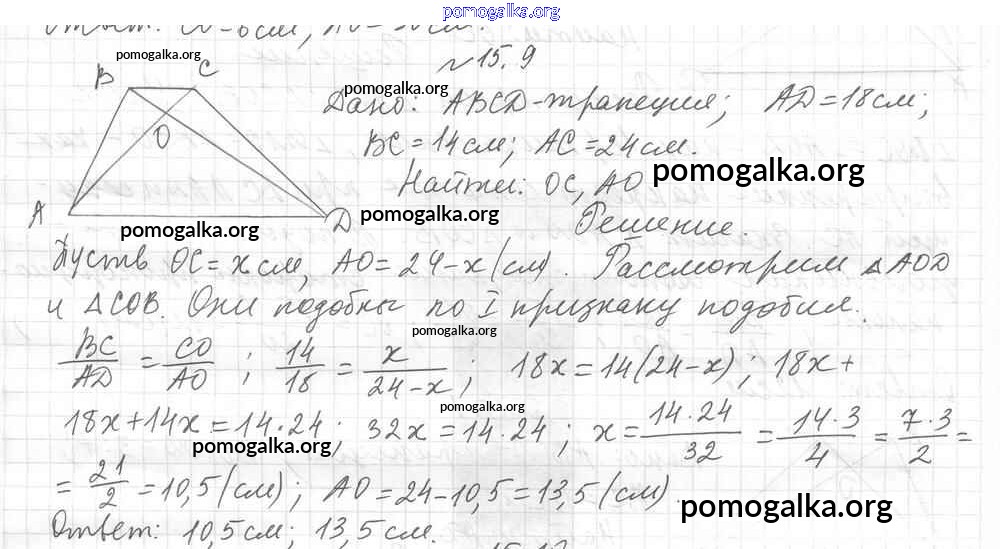 pomogalka.org
Ответ: СО-6см, АО-
pomogalka.org
№15.9
B C
pomogalka.org
Дано: ABCD-трапеция; AD=18см;
O
BC=14см; AC=24см.
pomogalka.org
Найти: OC, AO
A D
pomogalka.org
pomogalka.org
Решение.
Пусть OC=x см, AO=24-x(см). Рассмотрим △AOD
и △COB. Они подобны по I признаку подобия.
pomogalka.org
BC/AD = CO/AO ; 14/18 = x/24-x ; 18x=14(24-x); 18x+
pomogalka.org
18x+14x=14·24; 32x=14·24; x=14·24/32 = 14·3/4 = 7·3/2 =
pomogalka.org
= 21/2 = 10,5(см); AO=24-10,5=13,5(см).
pomogalka.org
Ответ: 10,5см; 13,5см.